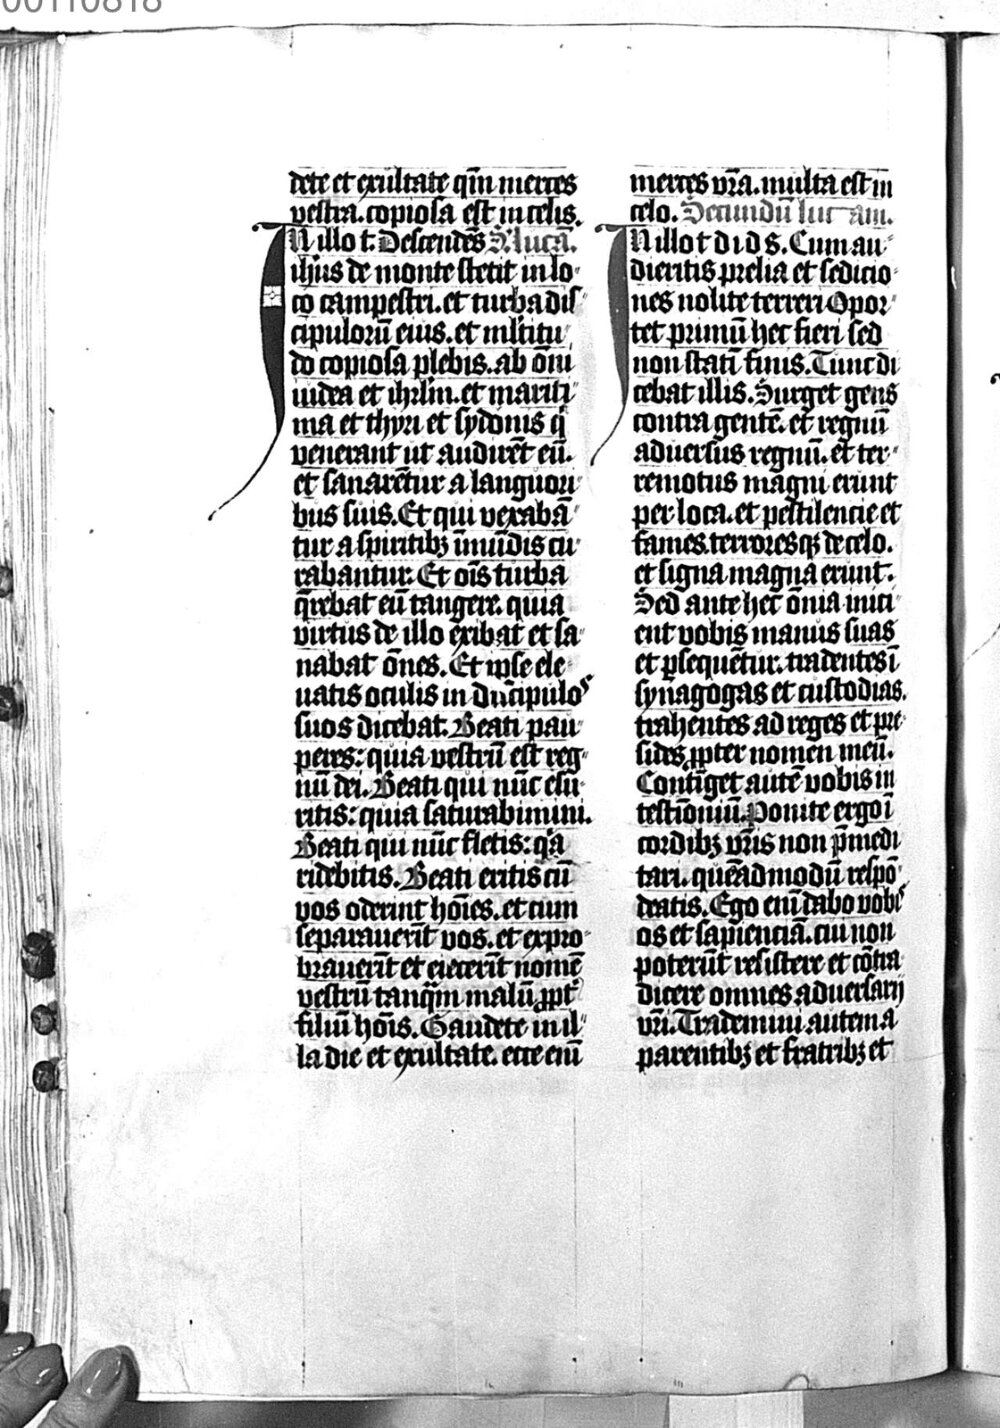 00110818
dete et exultate qm̄ merces
vestra. copiosa est in celis.
IN illo t. Descendēs S. lucā.
ih̄us de monte stetit in lo-
co campestri. et turba dis-
cipulorū eius. et mltitu
do copiosa plebis. ab om̄i
iudea et ihrlm̄. et mariti-
ma et thyri et sydonis q̇
venerant ut audirēt eū.
et sanarētur a languori-
bus suis. Et qui vexabā-
tur a spiritibꝫ īmūdis cu-
rabantur. Et oīs turba
q̄rebat eū tangere. quia
virtus de illo exibat et sa-
nabat ōnes. Et ipse ele-
uatis oculis in discipulos
suos dicebat. Beati pau-
peres: quia vestrū est reg-
nū dei. Beati qui nūc esu-
ritis: quia saturabimini.
Beati qui nūc fletis: qa
ridebitis. Beati eritis cū
vos oderint hōies. et cum
separauerīt vos. et expro-
brauerīt et eiecerīt nomē
vestrū tanq̄m malū ꝓpt̄
filiū hōis. Gaudete in il-
la die et exultate. ecce eni̅
merces vr̄a. multa est in
celo. Secundū lucam.
IN illo t d i d s. Cum au-
dieritis prelia et sedicio-
nes nolite terreri Opor-
tet primū hec fieri sed
non statī finis. Tunc di
cebat illis. Surget gens
contra gentē. et regnū
aduersus regnū. et ter-
remotus magni erunt
per loca. et pestilencie et
fames. terroresqꝫ de celo.
et signa magna erunt.
Sed ante hec ōnia inici
ent vobis manus suas
et ꝑsequētur. tradentes ī
synagogas et custodias.
trahentes ad reges et pre-
sides ꝓpter nomen meū.
Contīget autē vobis in
testīoniū. Ponite ergo ī
cordibꝫ vr̄is non p̄medi
tari. quēadmodū respō-
deatis. Ego enī dabo vobis
os et sapienciā. cui non
poterūt resistere et cōtra
dicere omnes aduersarij
vr̄i. Trademini autem a
parentibꝫ et fratribꝫ et